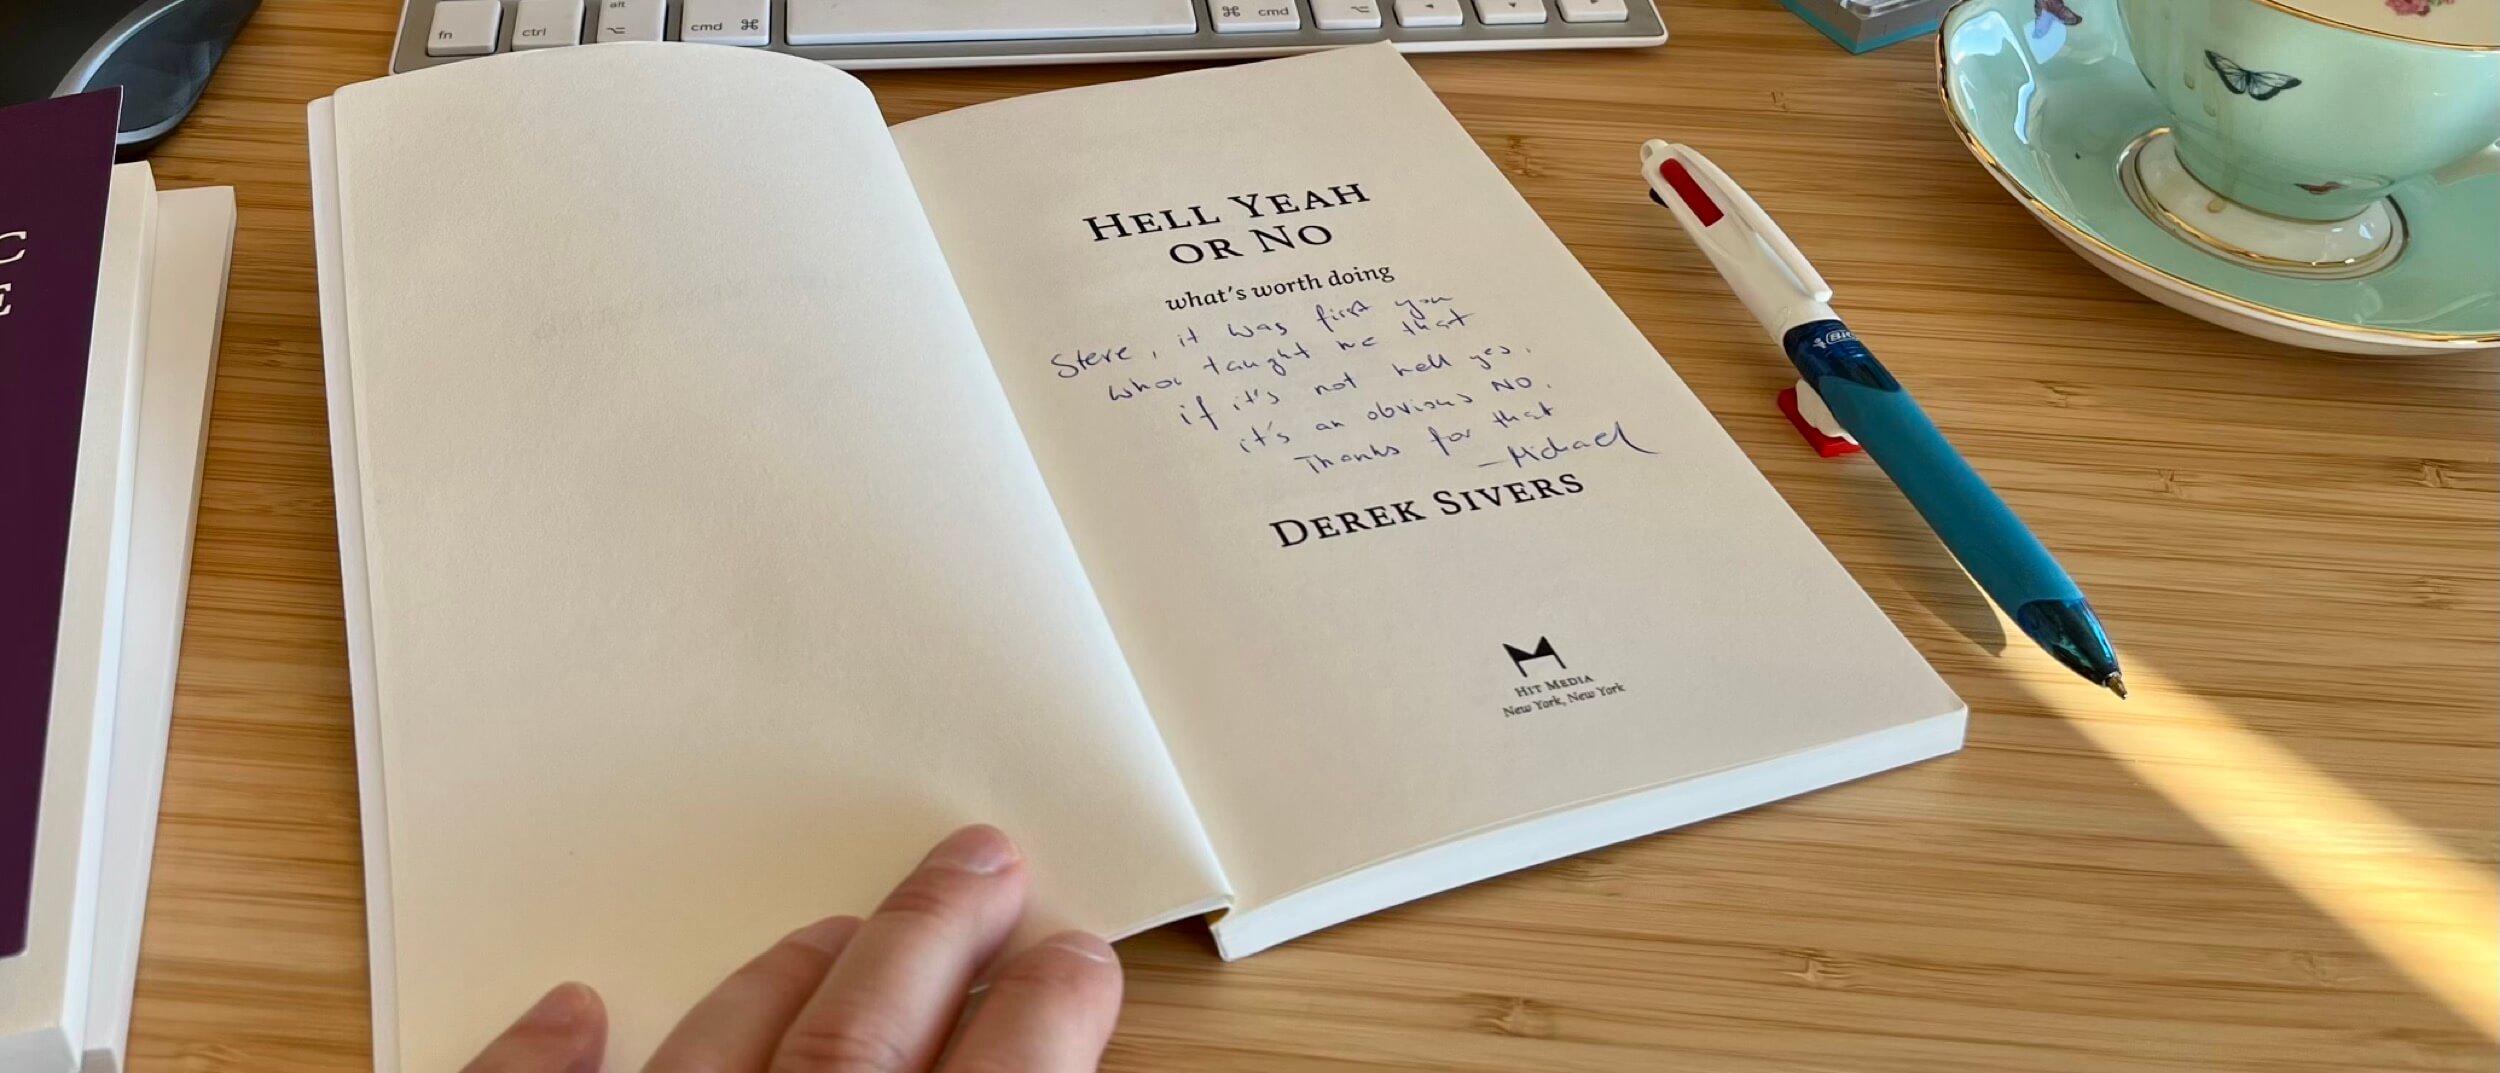 fn
ctrl
alt
cmd ⌘
⌘ cmd
C
E
HELL YEAH
OR NO
what's worth doing
Steve, it was first you
who taught me that
if it's not hell yes,
it's an obvious NO.
Thanks for that
—Michael
DEREK SIVERS
HIT MEDIA
New York, New York
BIC